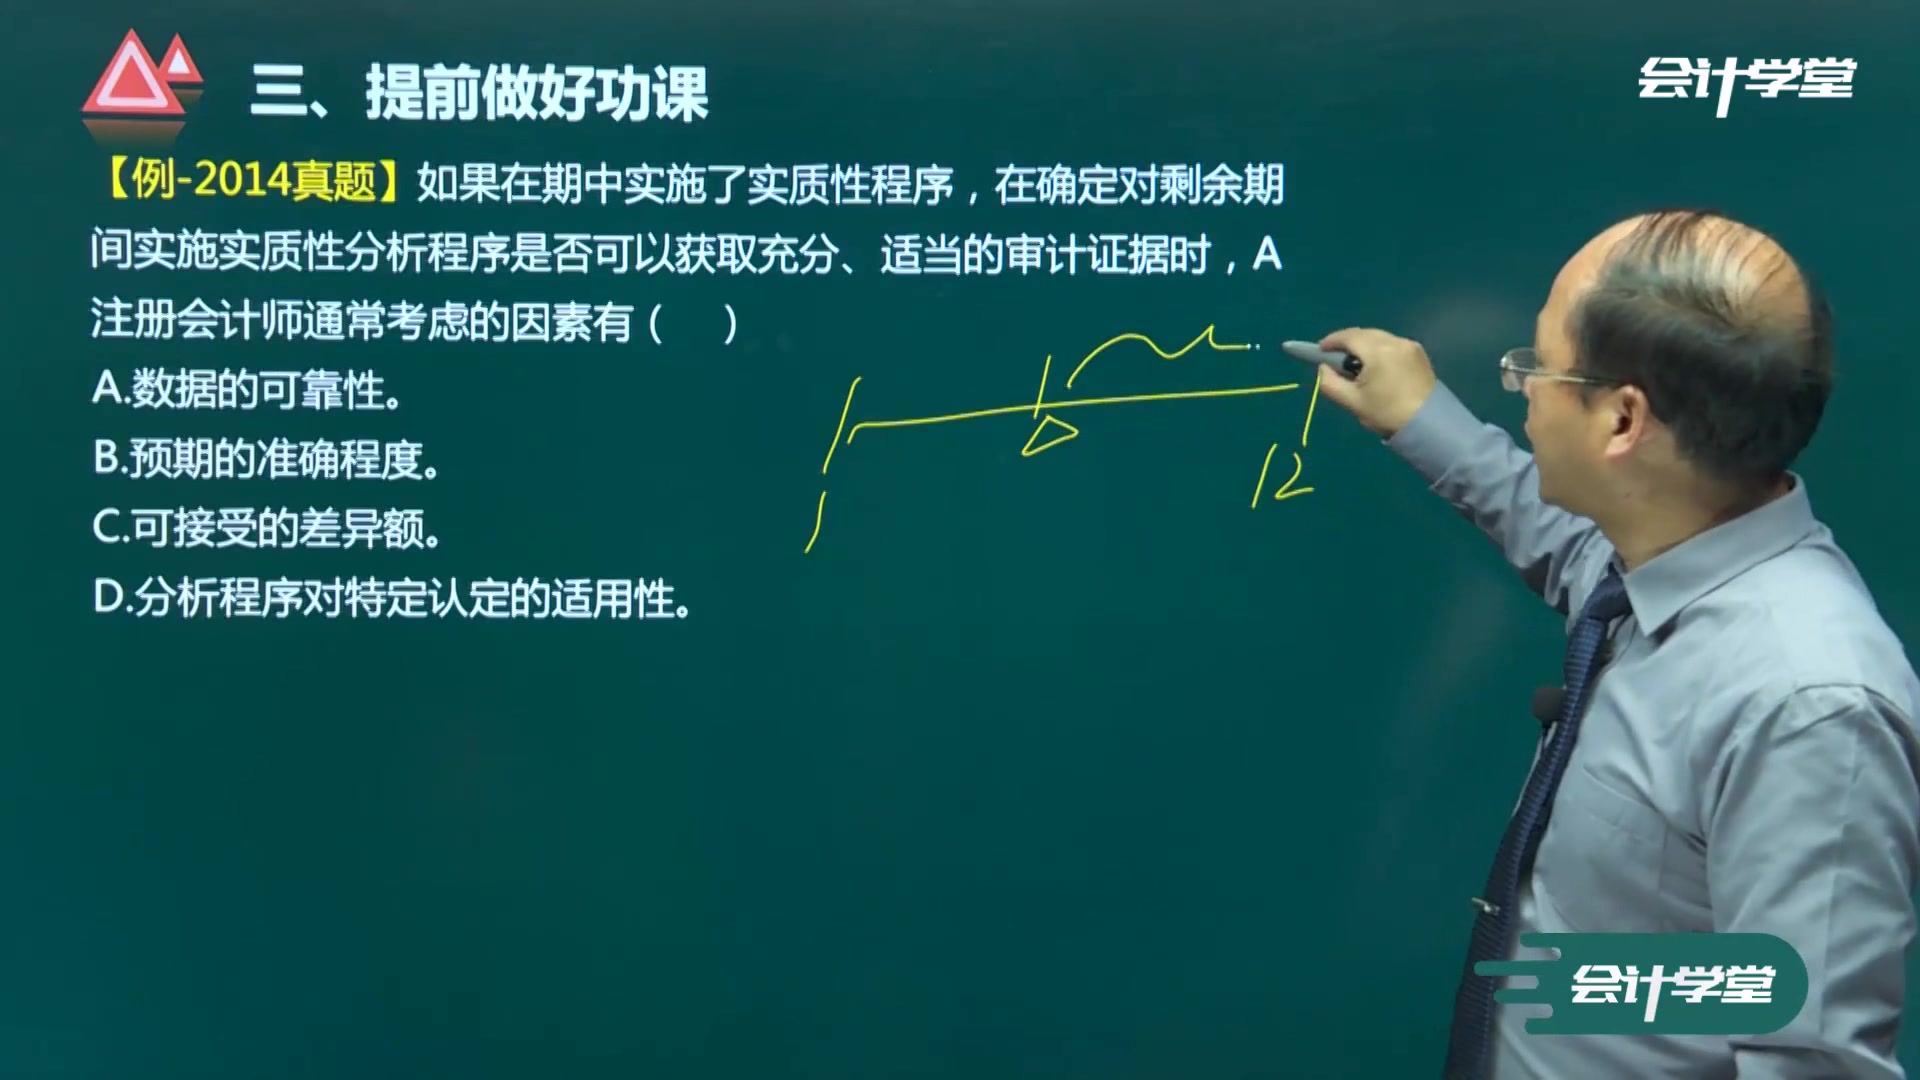 三、提前做好功课
会计学堂
【例-2014真题】如果在期中实施了实质性程序，在确定对剩余期
间实施实质性分析程序是否可以获取充分、适当的审计证据时，A
注册会计师通常考虑的因素有（　）
A.数据的可靠性。
B.预期的准确程度。
C.可接受的差异额。
D.分析程序对特定认定的适用性。
1
12
会计学堂